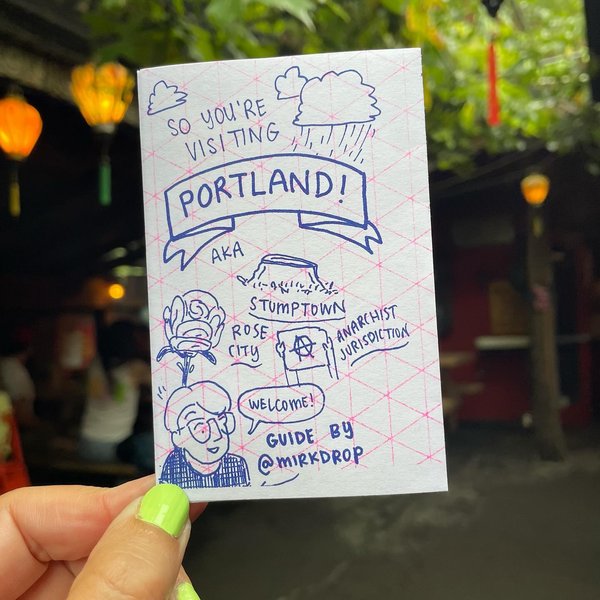 SO YOU'RE
VISITING
PORTLAND!
AKA
STUMPTOWN
ROSE
CITY
A
ANARCHIST
JURISDICTION
WELCOME!
GUIDE BY
@MIRKDROP